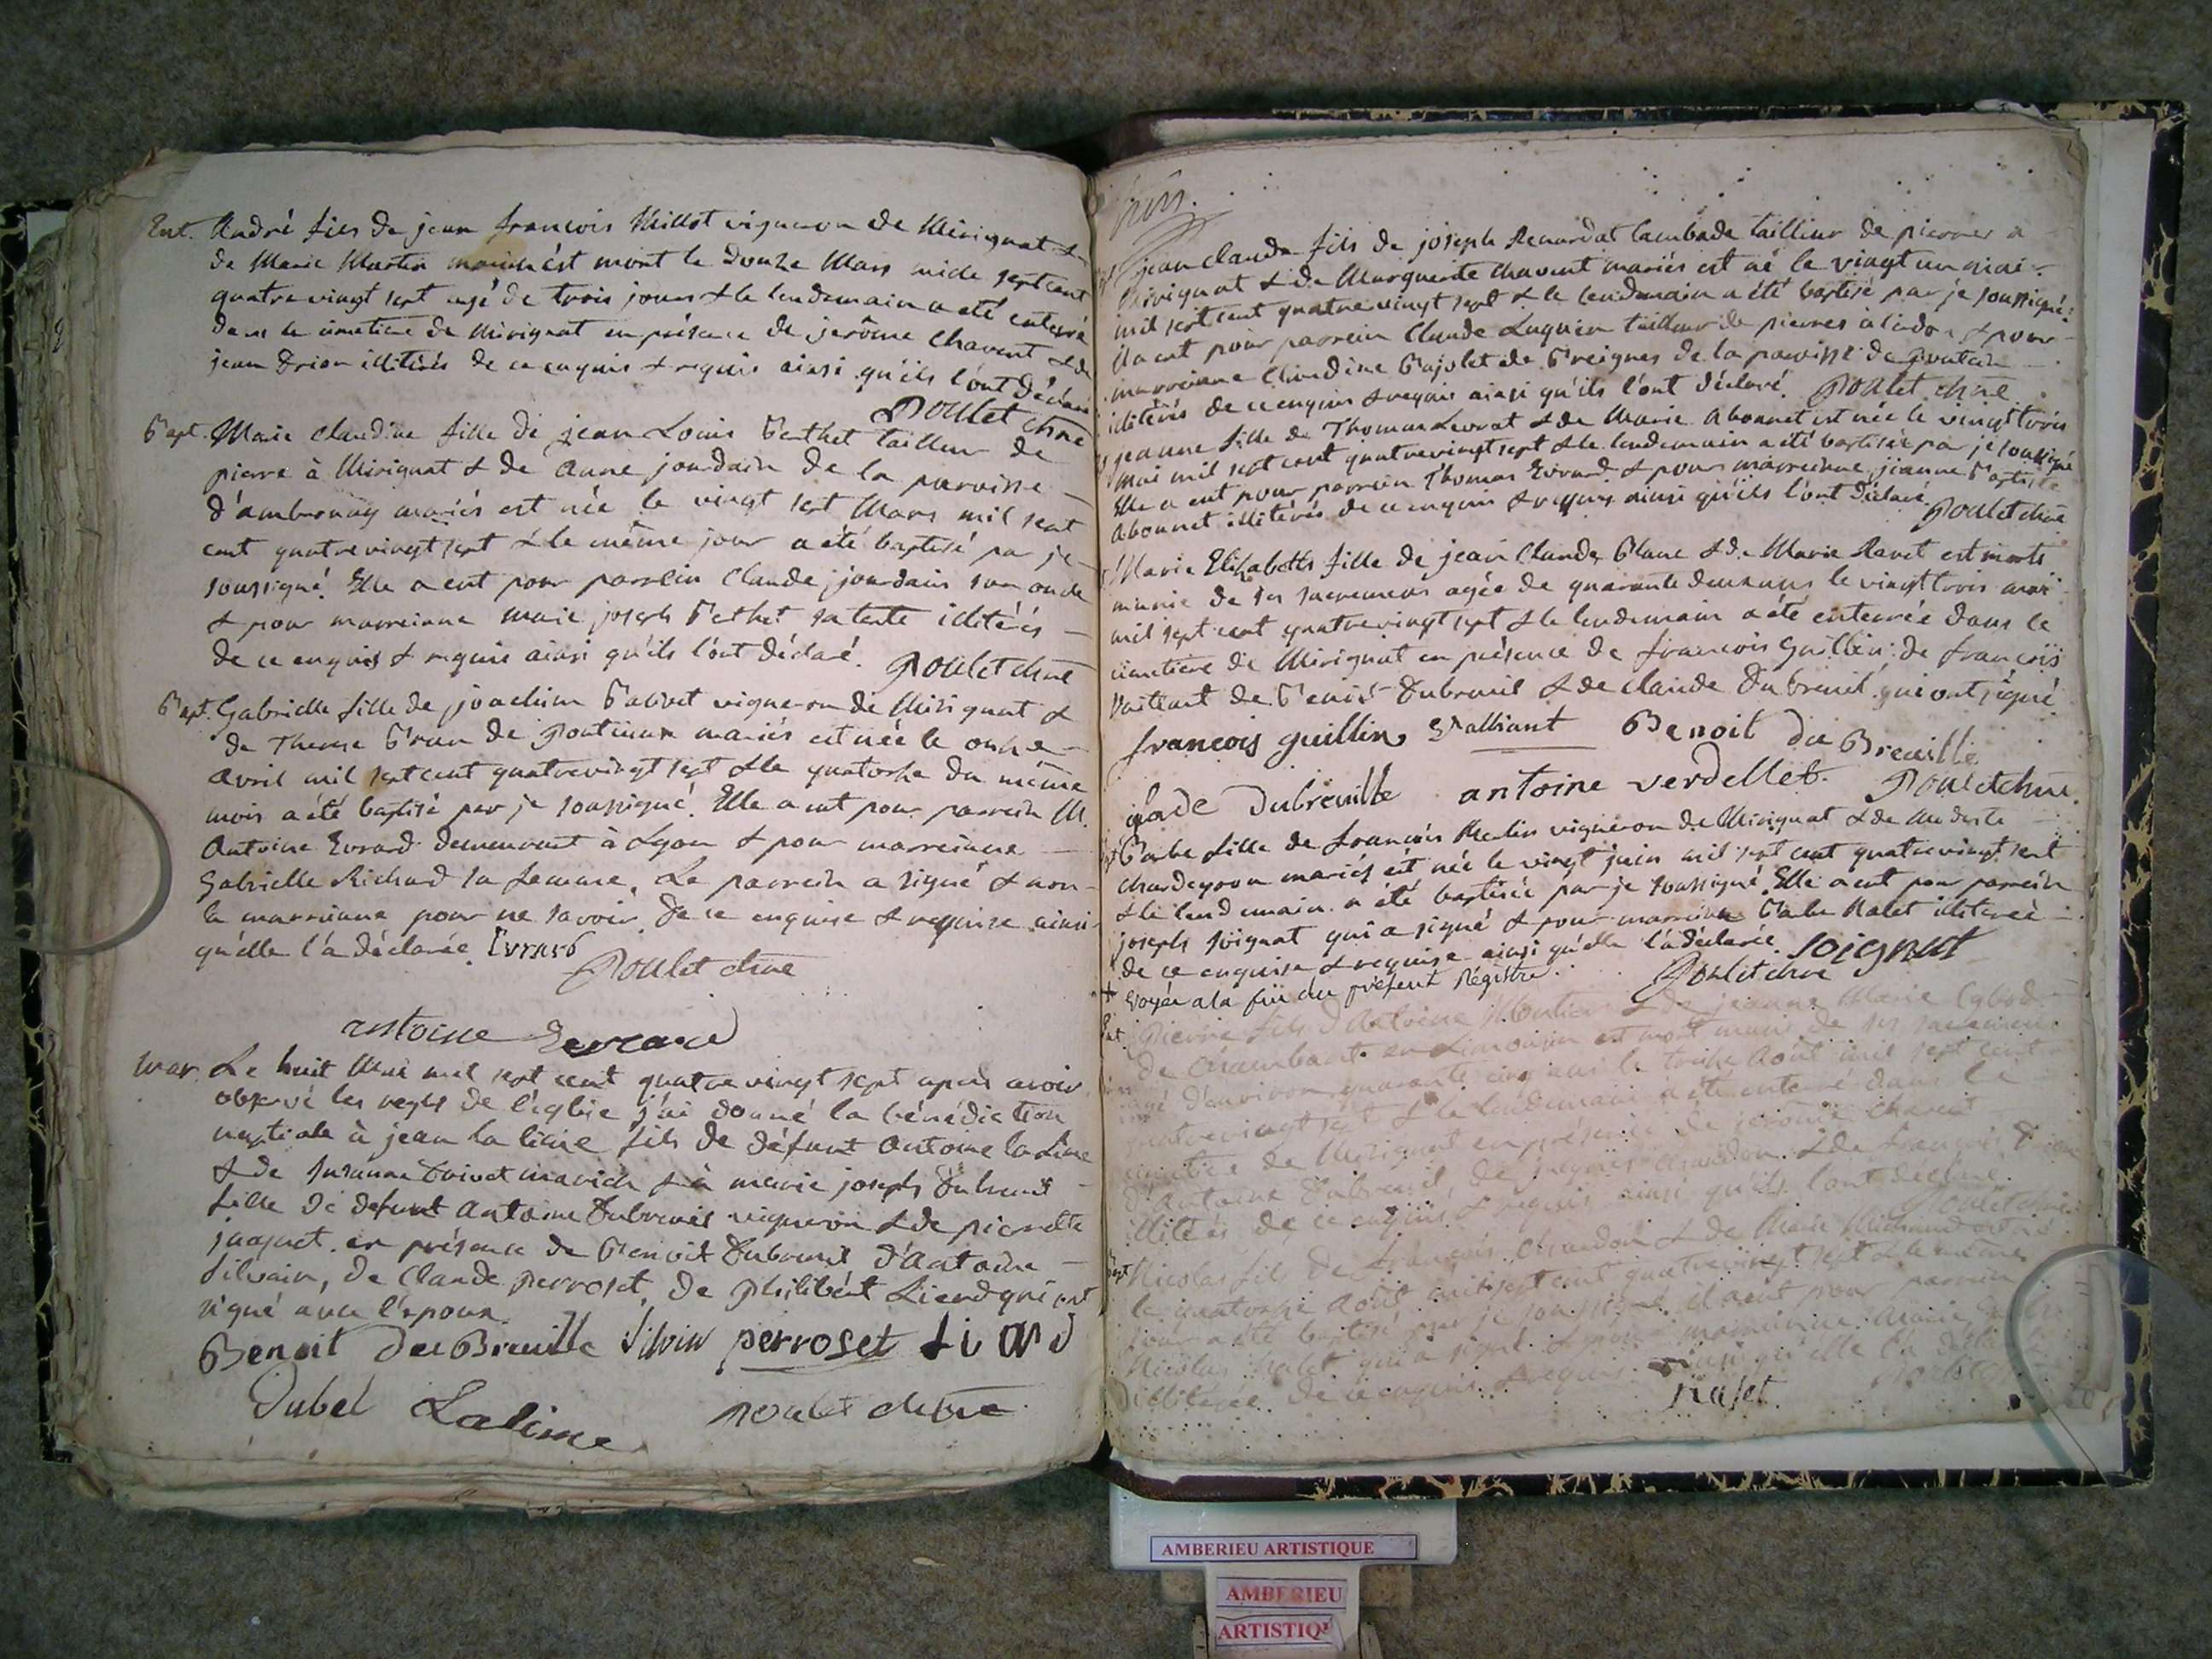 Ent. André fils de jean francois Millot vigneron de Mérignat & de
de Marie Martin mariés est mort le douze Mars mille sept cent
quatre vingt sept agé de trois jours & le lendemain a eté enterré
dans le cimetiere de Mérignat en présence de jerôme Chavent & de
jean Drion illitérés de ce enquis & requis ainsi qu'ils l'ont déclaré
Poulet chne
Bapt. Marie claudine fille de jean Louis Berthet tailleur de
pierre à Mérignat & de Anne jourdain de la paroisse
d'ambronay mariés est née le vingt sept Mars mil sept
cent quatre vingt sept & le même jour a été baptisé par je
soussigné. Elle a eut pour parrein Claude jourdain son oncle
& pour marreinne marie joseph Bethet sa tente illitérés
de ce enquis & requis ainsi qu'ils l'ont déclaré. Poulet chne
Bapt. Gabrielle fille de joachim vigneron de Mérignat &
de Therese Brun de mariés est née le onze
avril mil sept cent quatrevingt sept & le quatorze du même
mois a été baptisé par je soussigné. Elle a eut pour parrein M.
Antoine Evrard demeurant à Lyon & pour marreinne
Gabrielle Richard sa femme. Le parrein a signé & non
la marreinne pour ne savoir de ce enquise & requise ainsi
qu'elle l'a déclarée. Evrard
Poulet chne
antoine Evrard
mar. Le huit Mai mil sept cent quatre vingt sept apres avoir
observé les regles de l'église j'ai donné la bénédiction
nuptiale à jean la lime fils de défunt Antoine la Lime
& de Susanne & à marie joseph Dubreuil
fille de defunt Antoine Dubreuil vigneron & de pierrette
jaquet. en présence de Benoit Dubreuil d'Antoine
Silvain, de Claude perroset, de philibert Liend qui ont
signé avec l'epoux.
Benoit Du Breuille Silvin perroset Liand
Dubel Lalime poulet chne
jean claude fils de joseph Renardat lambade tailleur de pierres a
Mérignat & de Marguerite Chavent mariés est né le vingt un mai
mil sept cent quatre vingt sept & le lendemain a été baptisé par je soussigné.
Il a eut pour parrein Claude tailleur de pierres à & pour
marreinne Claudine Bajolet de Breignes de la paroisse de Poncin
illitérés de ce enquis & requis ainsi qu'ils l'ont déclaré. Poulet chne
jeanne fille de Thomas Levrat & de Marie Abonnet est née le vingt trois
mai mil sept cent quatrevingt sept & le lendemain a été baptisée par je soussigné
Elle a eut pour parrein Thomas Evrard & pour marreinne jeanne Baptiste
Abonnet illitérés de ce enquis & requis ainsi qu'ils l'ont déclaré. Poulet chne
Marie Elizabeth fille de jean Claude Blanc & de Marie Ravet est morte
munie de ses sacremens agée de quarante deux ans le vingt trois mai
mil sept cent quatrevingt sept & le lendemain a eté enterrée dans le
cimetiere de Mérignat en présence de francois Guillin de francois
Vaillant de Benoit Dubreuil & de claude Dubreuil qui ont signé
francois guillin Valliant Benoit du Breuille
glode Dubreuille antoine verdellet Poulet chne
Barbe fille de francois Merlin vigneron de Mérignat & de Modeste
chardeyron mariés est née le vingt juin mil sept cent quatrevingt sept
& le lendemain a été baptisée par je soussigné. Elle a eut pour parrein
joseph soignat qui a signé & pour marreinne Barbe Nalet illiterée
de ce enquise & requise ainsi qu'elle l'a déclarée. soignat
+ voyéz a la fin du présent Régistre. Poulet chne
Ent. Pierre fils d'Antoine & de jeanne Marie
de Chambaut en Limousin est mort muni de ses sacremens
agé d'environ quarante cinq ans le treize Août mil sept cent
quatrevingt sept & le lendemain a été enterré dans le
cimetiere de Mérignat en présence de jerôme Chavent
d'Antoine Dubreuil, de jacques chardon & de francois Drion
illitérés de ce enquis & requis ainsi qu'ils l'ont déclaré.
Poulet chne
Bapt Nicolas fils de francois Chardon & de Marie Michaud est né
le quatorze Août mil sept cent quatrevingt sept & le même
jour a été baptisé par je soussigné il a eut pour parrein
Nicolas Nalet qui a signé & pour marreinne Marie
illiterée de ce enquise & requise ainsi qu'elle l'a déclaré
Nalet
AMBERIEU ARTISTIQUE
AMBERIEU
ARTISTIQ